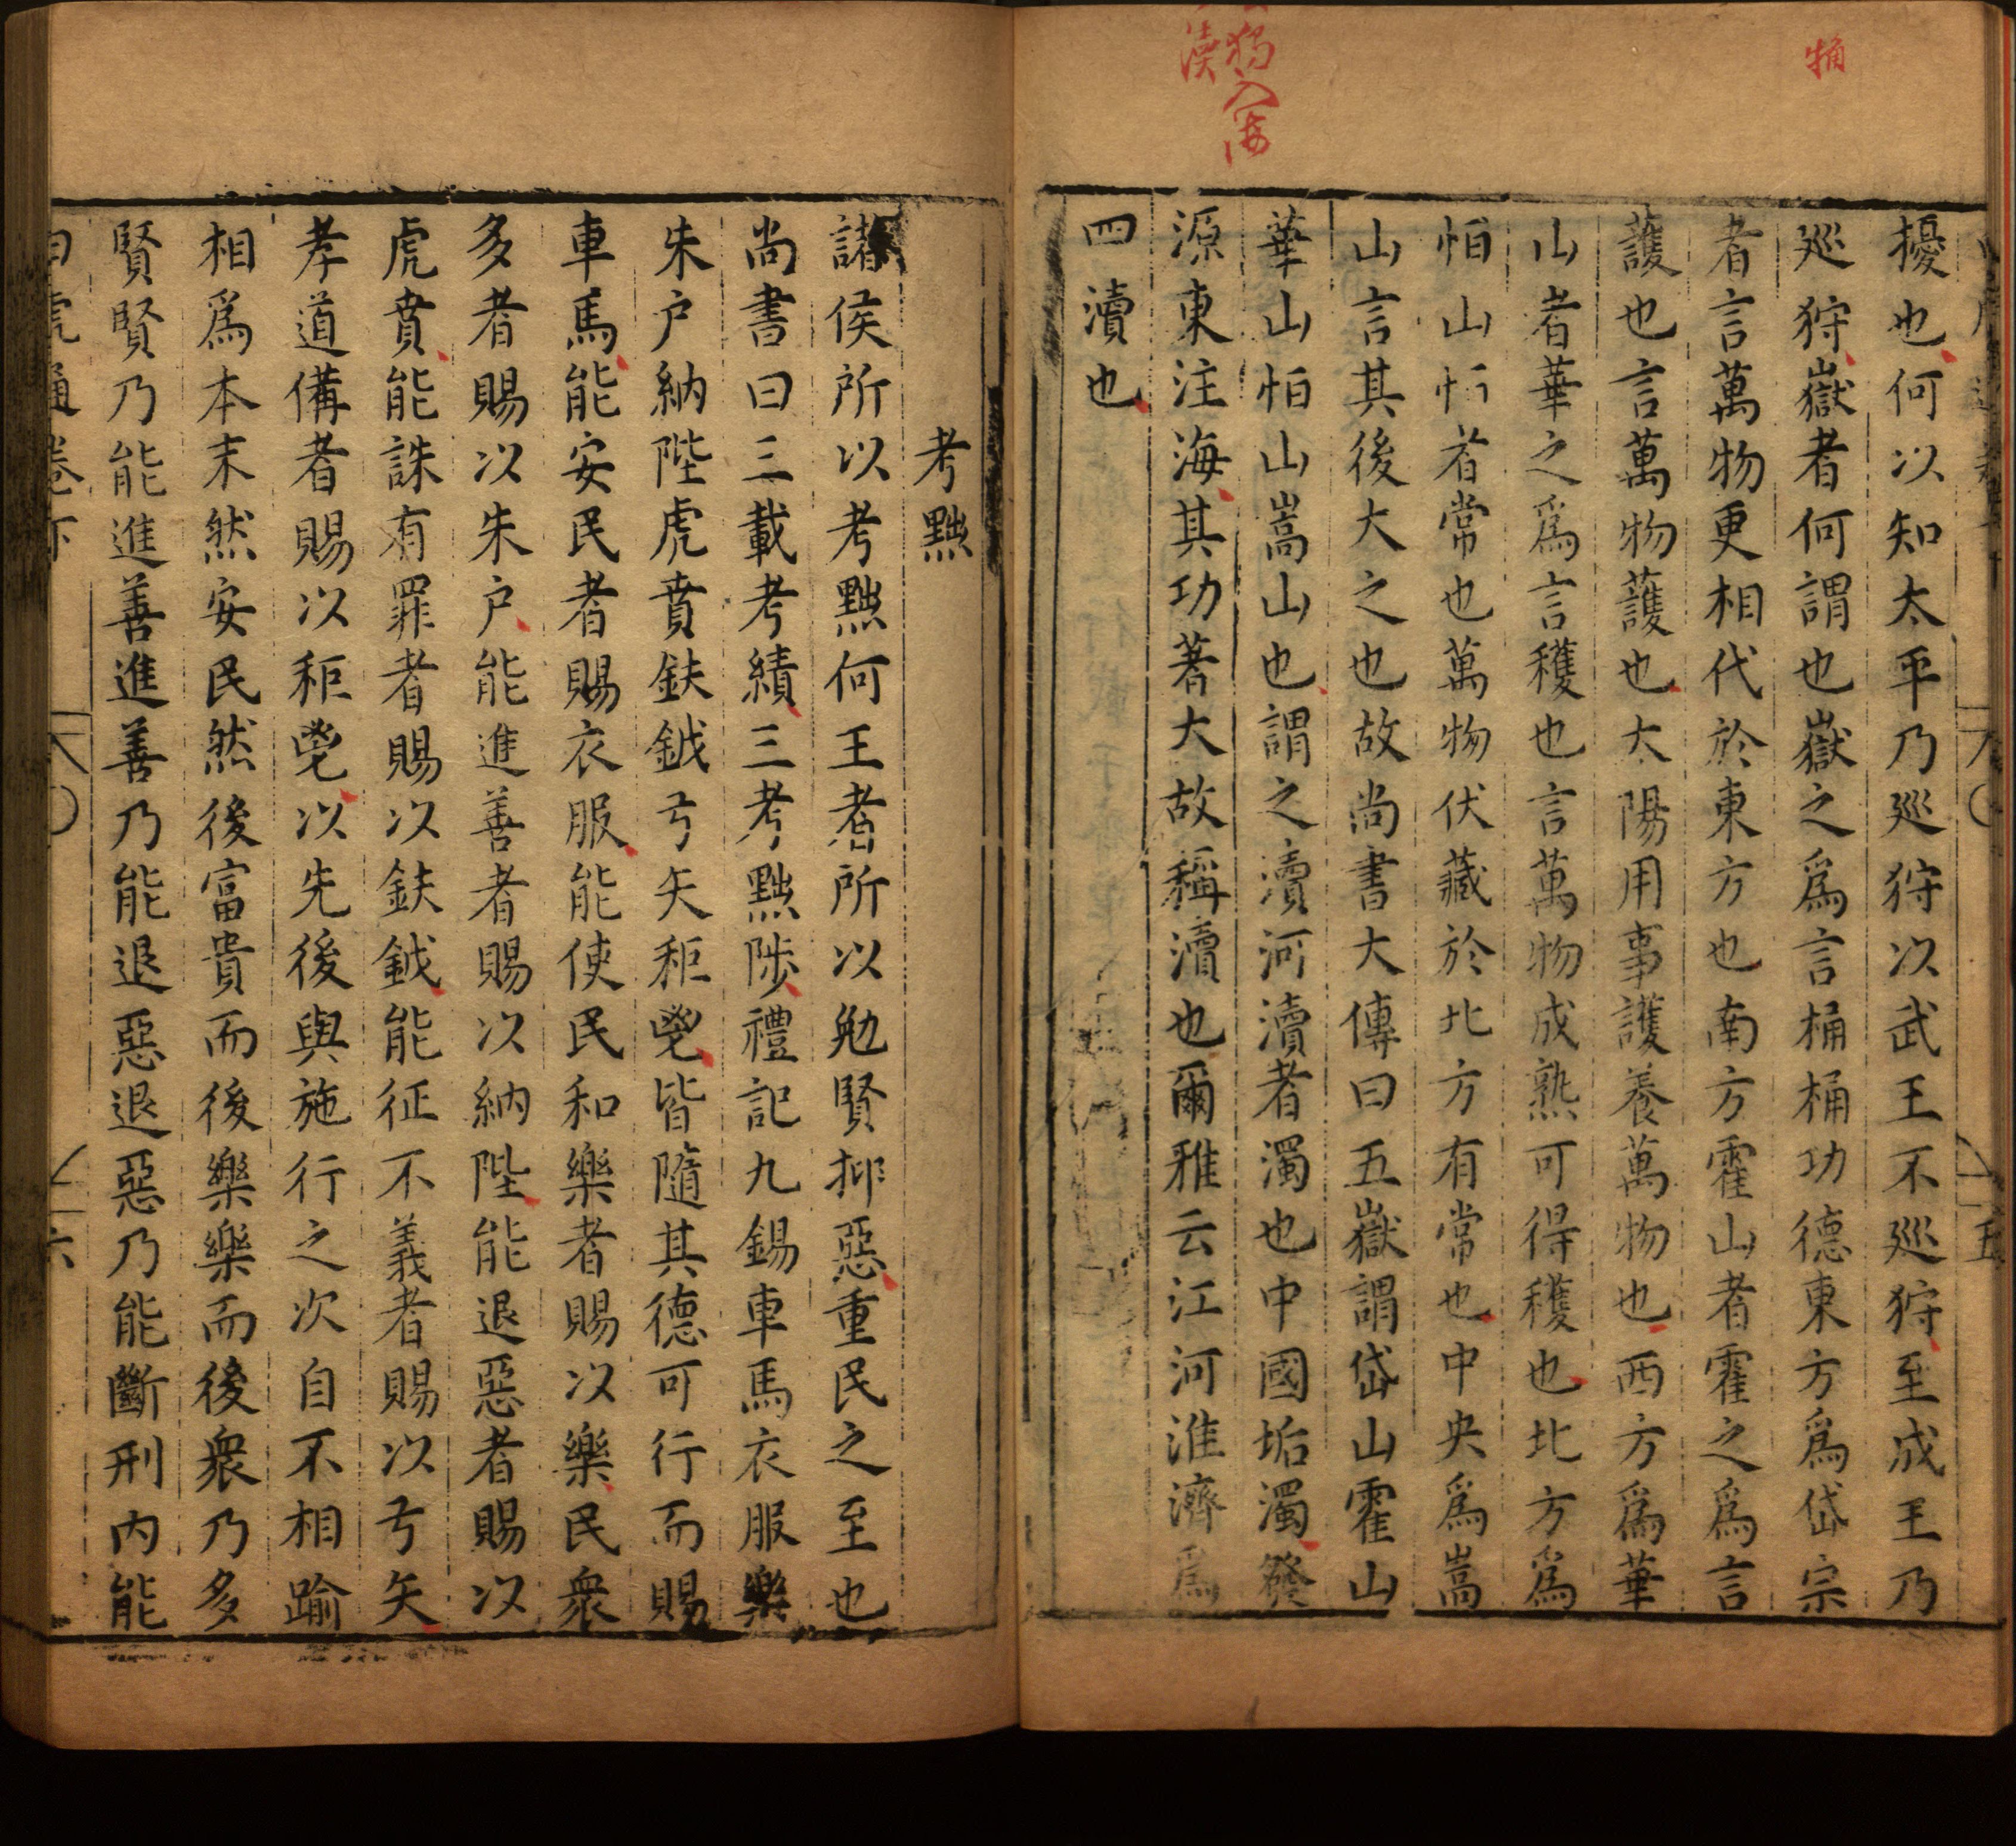 桷
擾也何以知太平乃巡狩以武王不巡狩至成王乃
巡狩嶽者何謂也嶽之爲言桷桷功德東方爲岱宗
者言萬物更相代於東方也南方霍山者霍之爲言
護也言萬物護也太陽用事護養萬物也西方爲華
山者華之爲言穫也言萬物成熟可得穫也北方爲
恒山恒者常也萬物伏藏於北方有常也中央爲嵩
山言其後大之也故尚書大傳曰五嶽謂岱山霍山
華山恒山嵩山也謂之瀆河瀆者濁也中國垢濁發
源東注海其功著大故稱瀆也爾雅云江河淮濟爲
四瀆也
考黜
諸侯所以考黜何王者所以勉賢抑惡重民之至也
尚書曰三載考績三考黜陟禮記九錫車馬衣服樂
朱户納陛虎賁鈇鉞弓矢秬鬯皆隨其德可行而賜
車馬能安民者賜衣服能使民和樂者賜以樂民衆
多者賜以朱户能進善者賜以納陛能退惡者賜以
虎賁能誅有罪者賜以鈇鉞能征不義者賜以弓矢
孝道備者賜以秬鬯以先後與施行之次自不相踰
相爲本末然安民然後富貴而後樂樂而後衆乃多
賢賢乃能進善進善乃能退惡退惡乃能斷刑內能